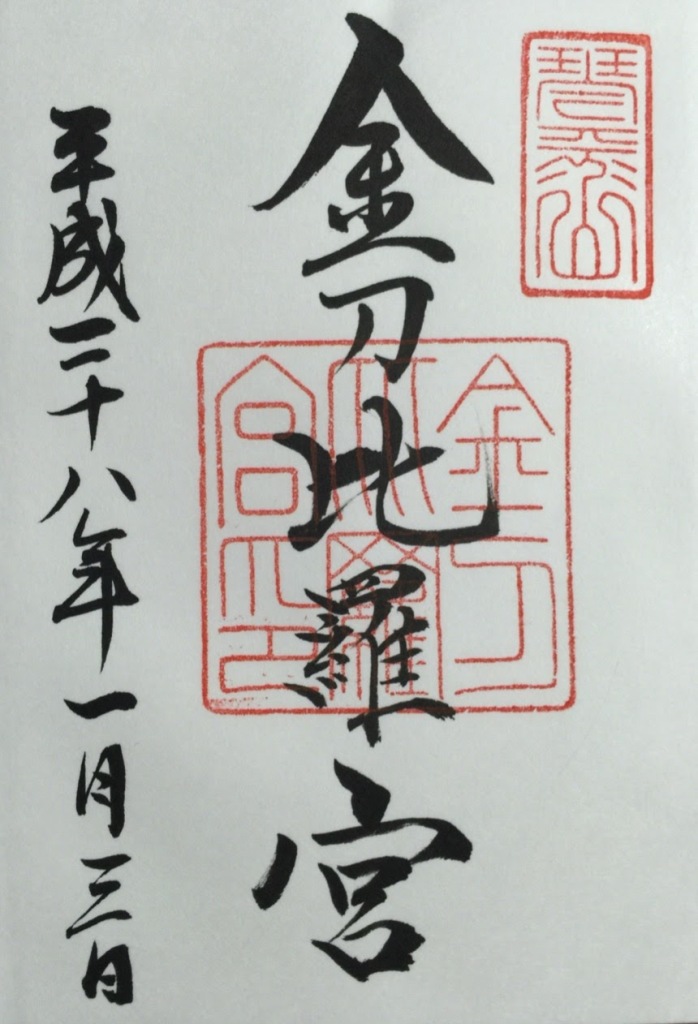 琴平山
金刀比羅宮
金刀比羅宮之印
平成二十八年一月三日